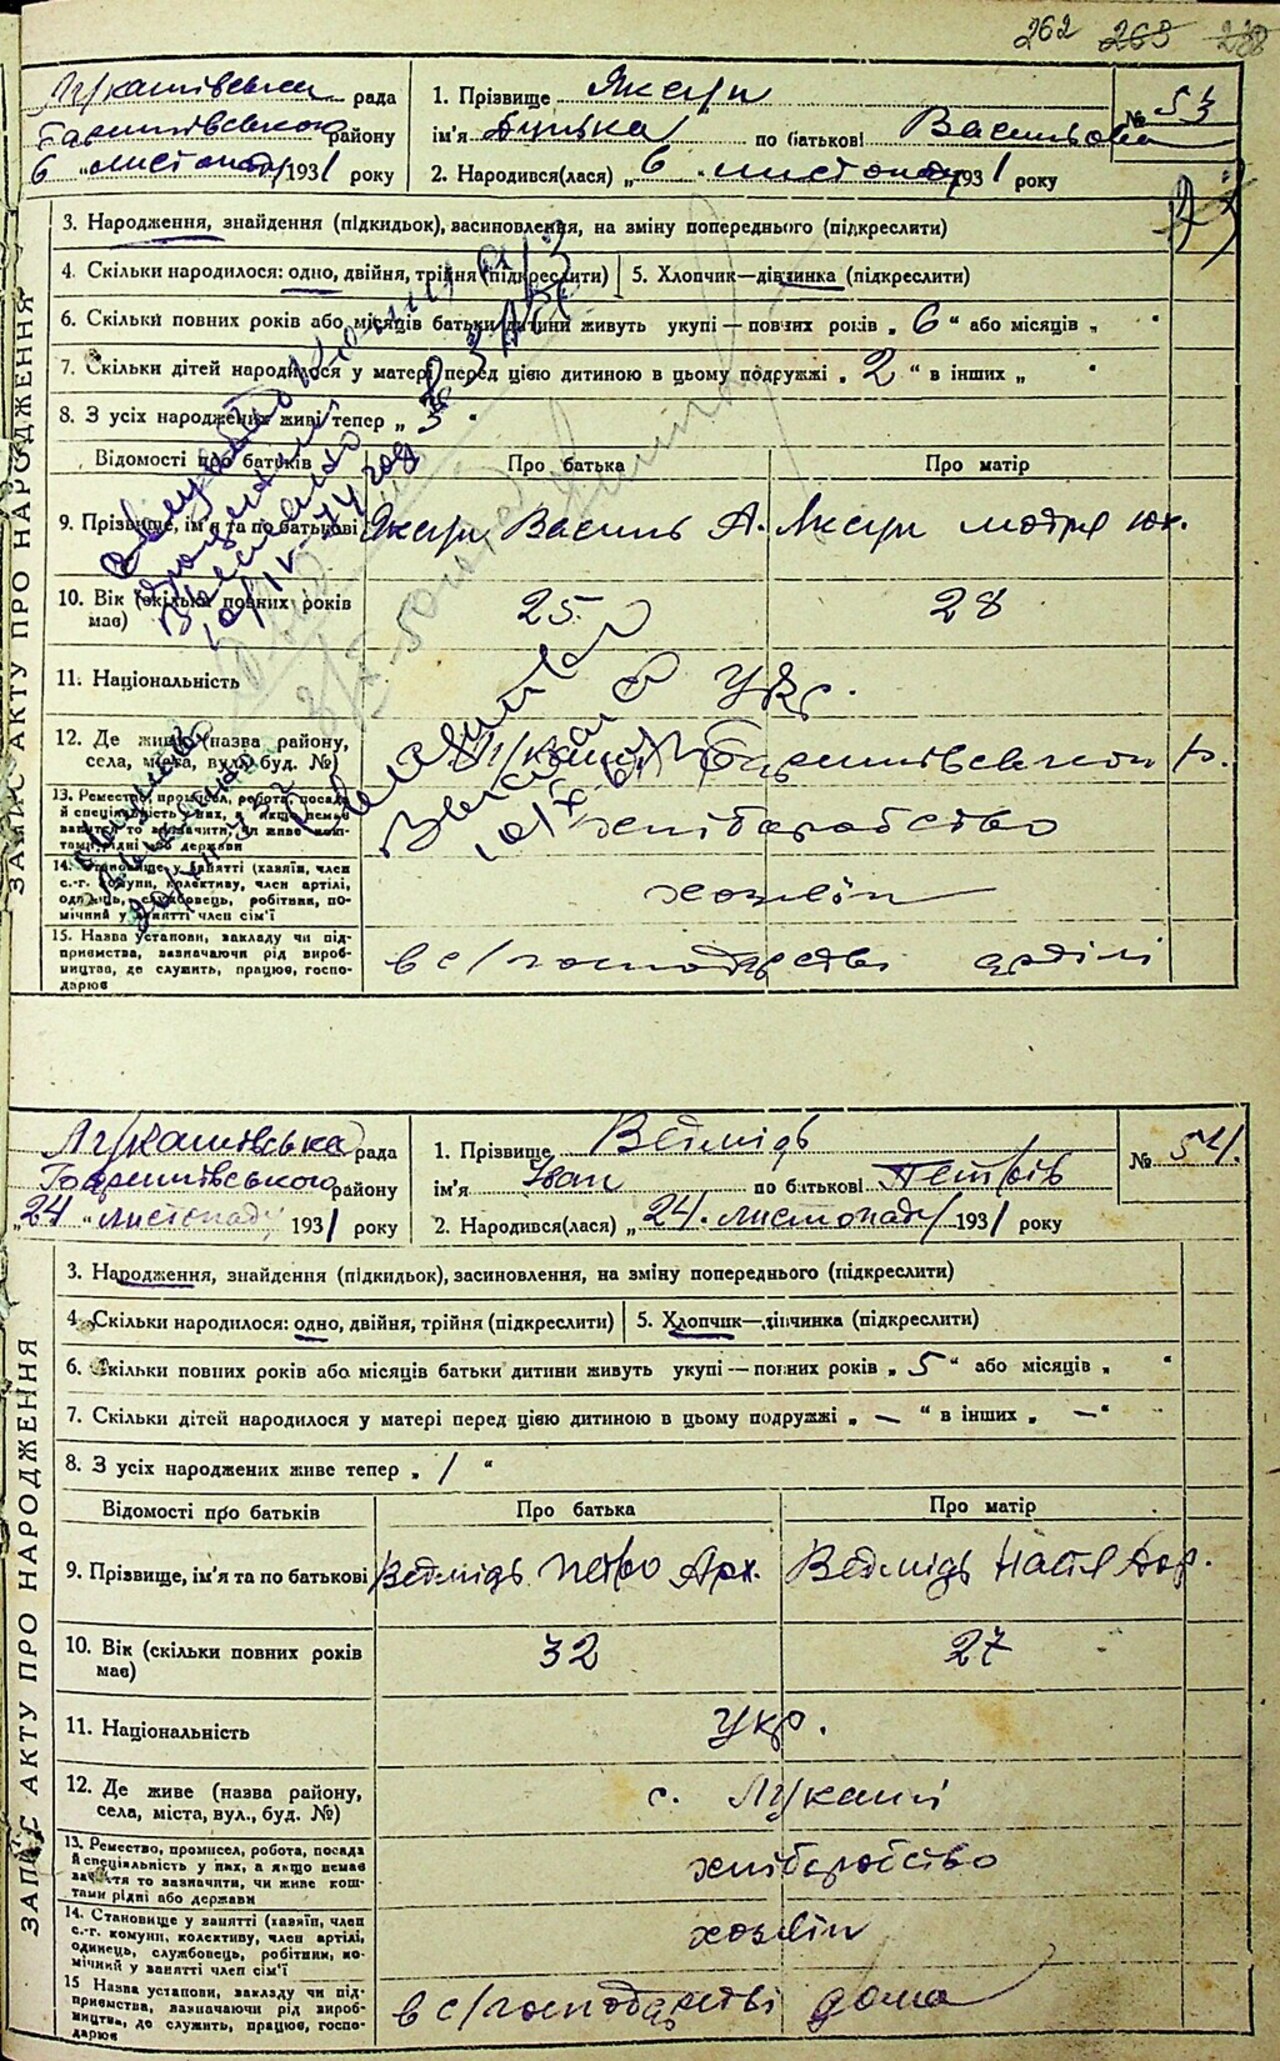 262 263
Лукашівська рада
Баришівського району
6 "листопаду 1931 року
1. Прізвище Яксун
ім'я по батькові Васильовна
2. Народився(лася) „ 6 " листопаду 1931 року
№ 53
3. Народження, знайдення (підкидьок), васиновлення, на зміну попереднього (підкреслити)
4. Скільки народилося: одно, двійня, трійня (підкреслити) 5. Хлопчик—дівчинка (підкреслити)
6. Скільки повних років або місяців батьки дитини живуть укупі — повних років „ 6 " або місяців „ "
7. Скільки дітей народилося у матері перед цією дитиною в цьому подружжі „ 2 " в інших „ "
8. З усіх народжених живі тепер „ 3 "
Відомості про батьків Про батька Про матір
9. Прізвище, ім'я та по батькові Яксун Василь А. Яксун Мотря Юх.
10. Вік (скільки повних років має) 25 28
11. Національність Укр.
12. Де живе (назва району, села, міста, вул., буд. №) Баришівського р.
13. Ремество, промисел, робота, посада й спеціальність у них, а якщо немає заняття то зазначити, чи живе коштами рідні або держави хліборобство
14. Становище у занятті (хазяїн, член с.-г. комуни, колективу, член артілі, одинець, службовець, робітник, помічний у занятті член сім'ї хозяїн
15. Назва установи, закладу чи підприємства, зазначаючи рід виробництва, де служить, працює, господарює в с/господарстві артілі
ЗАПИС АКТУ ПРО НАРОДЖЕННЯ
Лукашівська рада
Баришівського району
„24 " листопаду 1931 року
1. Прізвище Ведмідь
ім'я Іван по батькові Петрів
2. Народився(лася) „ 24. листопаду 1931 року
№ 54.
3. Народження, знайдення (підкидьок), засиновлення, на зміну попереднього (підкреслити)
4. Скільки народилося: одно, двійня, трійня (підкреслити) 5. Хлопчик—дівчинка (підкреслити)
6. Скільки повних років або місяців батьки дитини живуть укупі — повних років „ 5 " або місяців „ "
7. Скільки дітей народилося у матері перед цією дитиною в цьому подружжі „ — " в інших „ — "
8. З усіх народжених живе тепер „ 1 "
Відомості про батьків Про батька Про матір
9. Прізвище, ім'я та по батькові Ведмідь Петро Арх. Ведмідь Настя
10. Вік (скільки повних років має) 32 27
11. Національність Укр.
12. Де живе (назва району, села, міста, вул., буд. №) с. Лукаші
13. Ремество, промисел, робота, посада й спеціяльність у них, а якщо немає заняття то зазначити, чи живе коштами рідні або держави хліборобство
14. Становище у занятті (хазяїн, член с.-г. комуни, колективу, член артілі, одинець, службовець, робітник, помічний у занятті член сім'ї хозяїн
15 Назва установи, закладу чи підприємства, вазначаючи рід виробництва, де служить, працює, господарює в с/господарстві дома
ЗАПИС АКТУ ПРО НАРОДЖЕННЯ